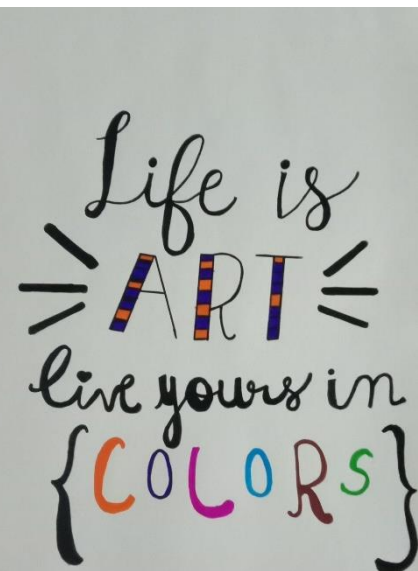 Life is
ART
live yours in
{COLORS}